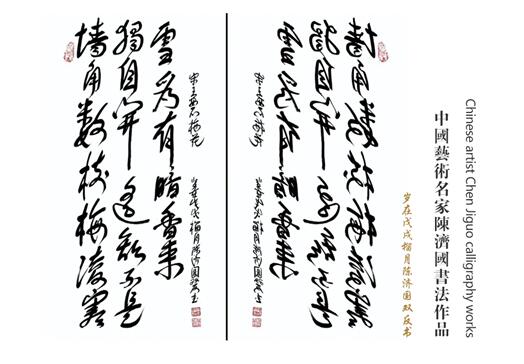 墙角数枝梅凌寒
独自开遥知不是
雪为有暗香来
宋王安石梅花
岁在戊戌榴月陈济国
墙角数枝梅凌寒
独自开遥知不是
雪为有暗香来
宋王安石梅花
岁在戊戌榴月陈济国
Chinese artist Chen Jiguo calligraphy works
中國藝術名家陳濟國書法作品
岁在戊戌榴月陈济国双反书